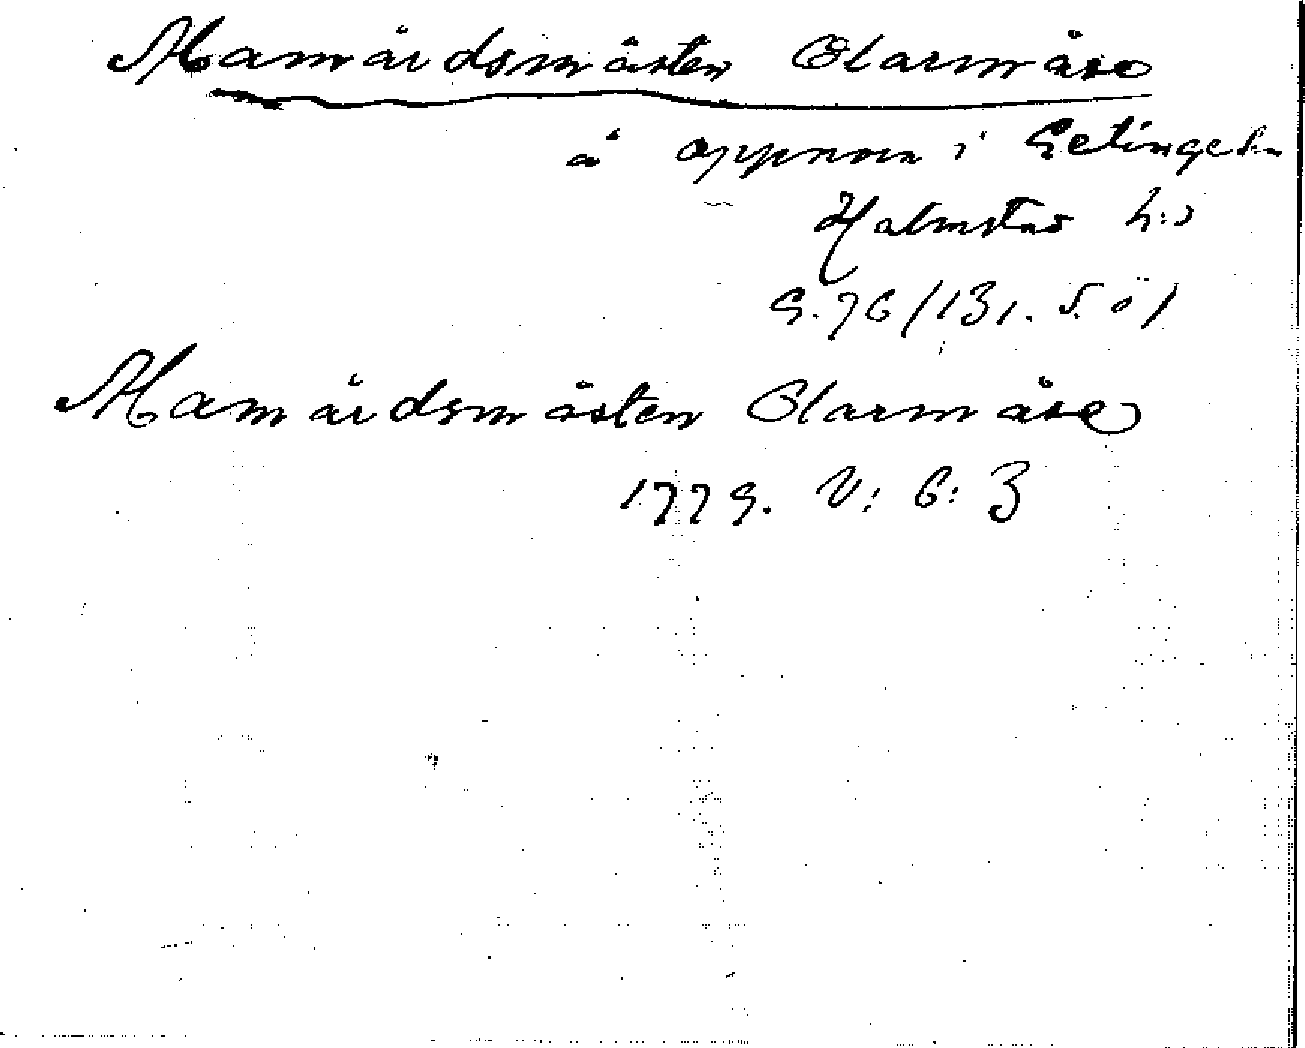 Mamärdsmästen Olarmåse
å oppnora i Getinge sn
Halmstad h:d
G. 76/131. S. Ö /
Mamärdsmästen Olarmåse
1779. V: G: 3